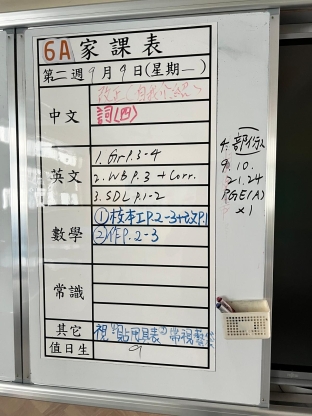 6A 家課表
第二週 9月9日(星期一)
中文
改正(自我介紹)
詞(四)
英文
1. Gr P.3-4
2. WB P.3 + Corr.
3. SDL P.1-2
數學
①校本工P.2-3+改P.1
②作P.2-3
常識
其它
視
值日生
9
9. 10.
21. 24
PGE(A)
x1